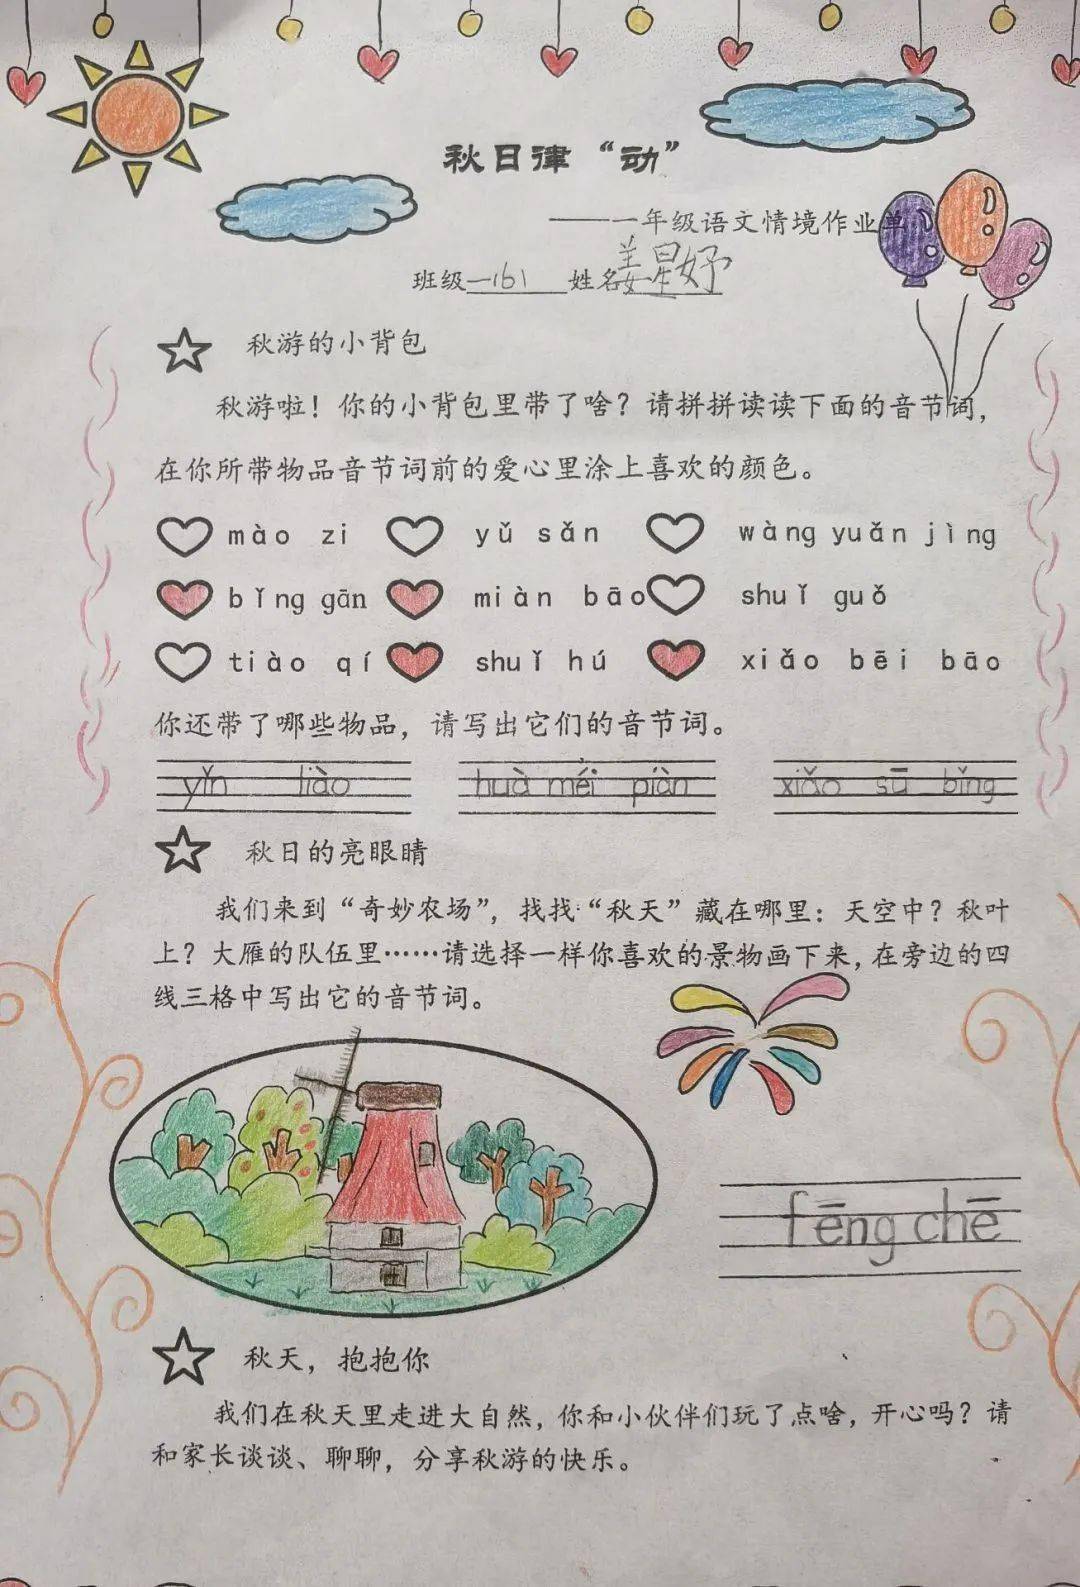 秋日律“动”
——一年级语文情境作业单
班级一161 姓名姜星妤
秋游的小背包
秋游啦！你的小背包里带了啥？请拼拼读读下面的音节词，
在你所带物品音节词前的爱心里涂上喜欢的颜色。
mào zi yǔ sǎn wàng yuǎn jìng
bǐng gān miàn bāo shuǐ guǒ
tiào qí shuǐ hú xiǎo bēi bāo
你还带了哪些物品，请写出它们的音节词。
yǐn liào huà méi piàn xiǎo sū bǐng
秋日的亮眼睛
我们来到“奇妙农场”，找找“秋天”藏在哪里：天空中？秋叶
上？大雁的队伍里……请选择一样你喜欢的景物画下来，在旁边的四
线三格中写出它的音节词。
fēng chē
秋天，抱抱你
我们在秋天里走进大自然，你和小伙伴们玩了点啥，开心吗？请
和家长谈谈、聊聊，分享秋游的快乐。